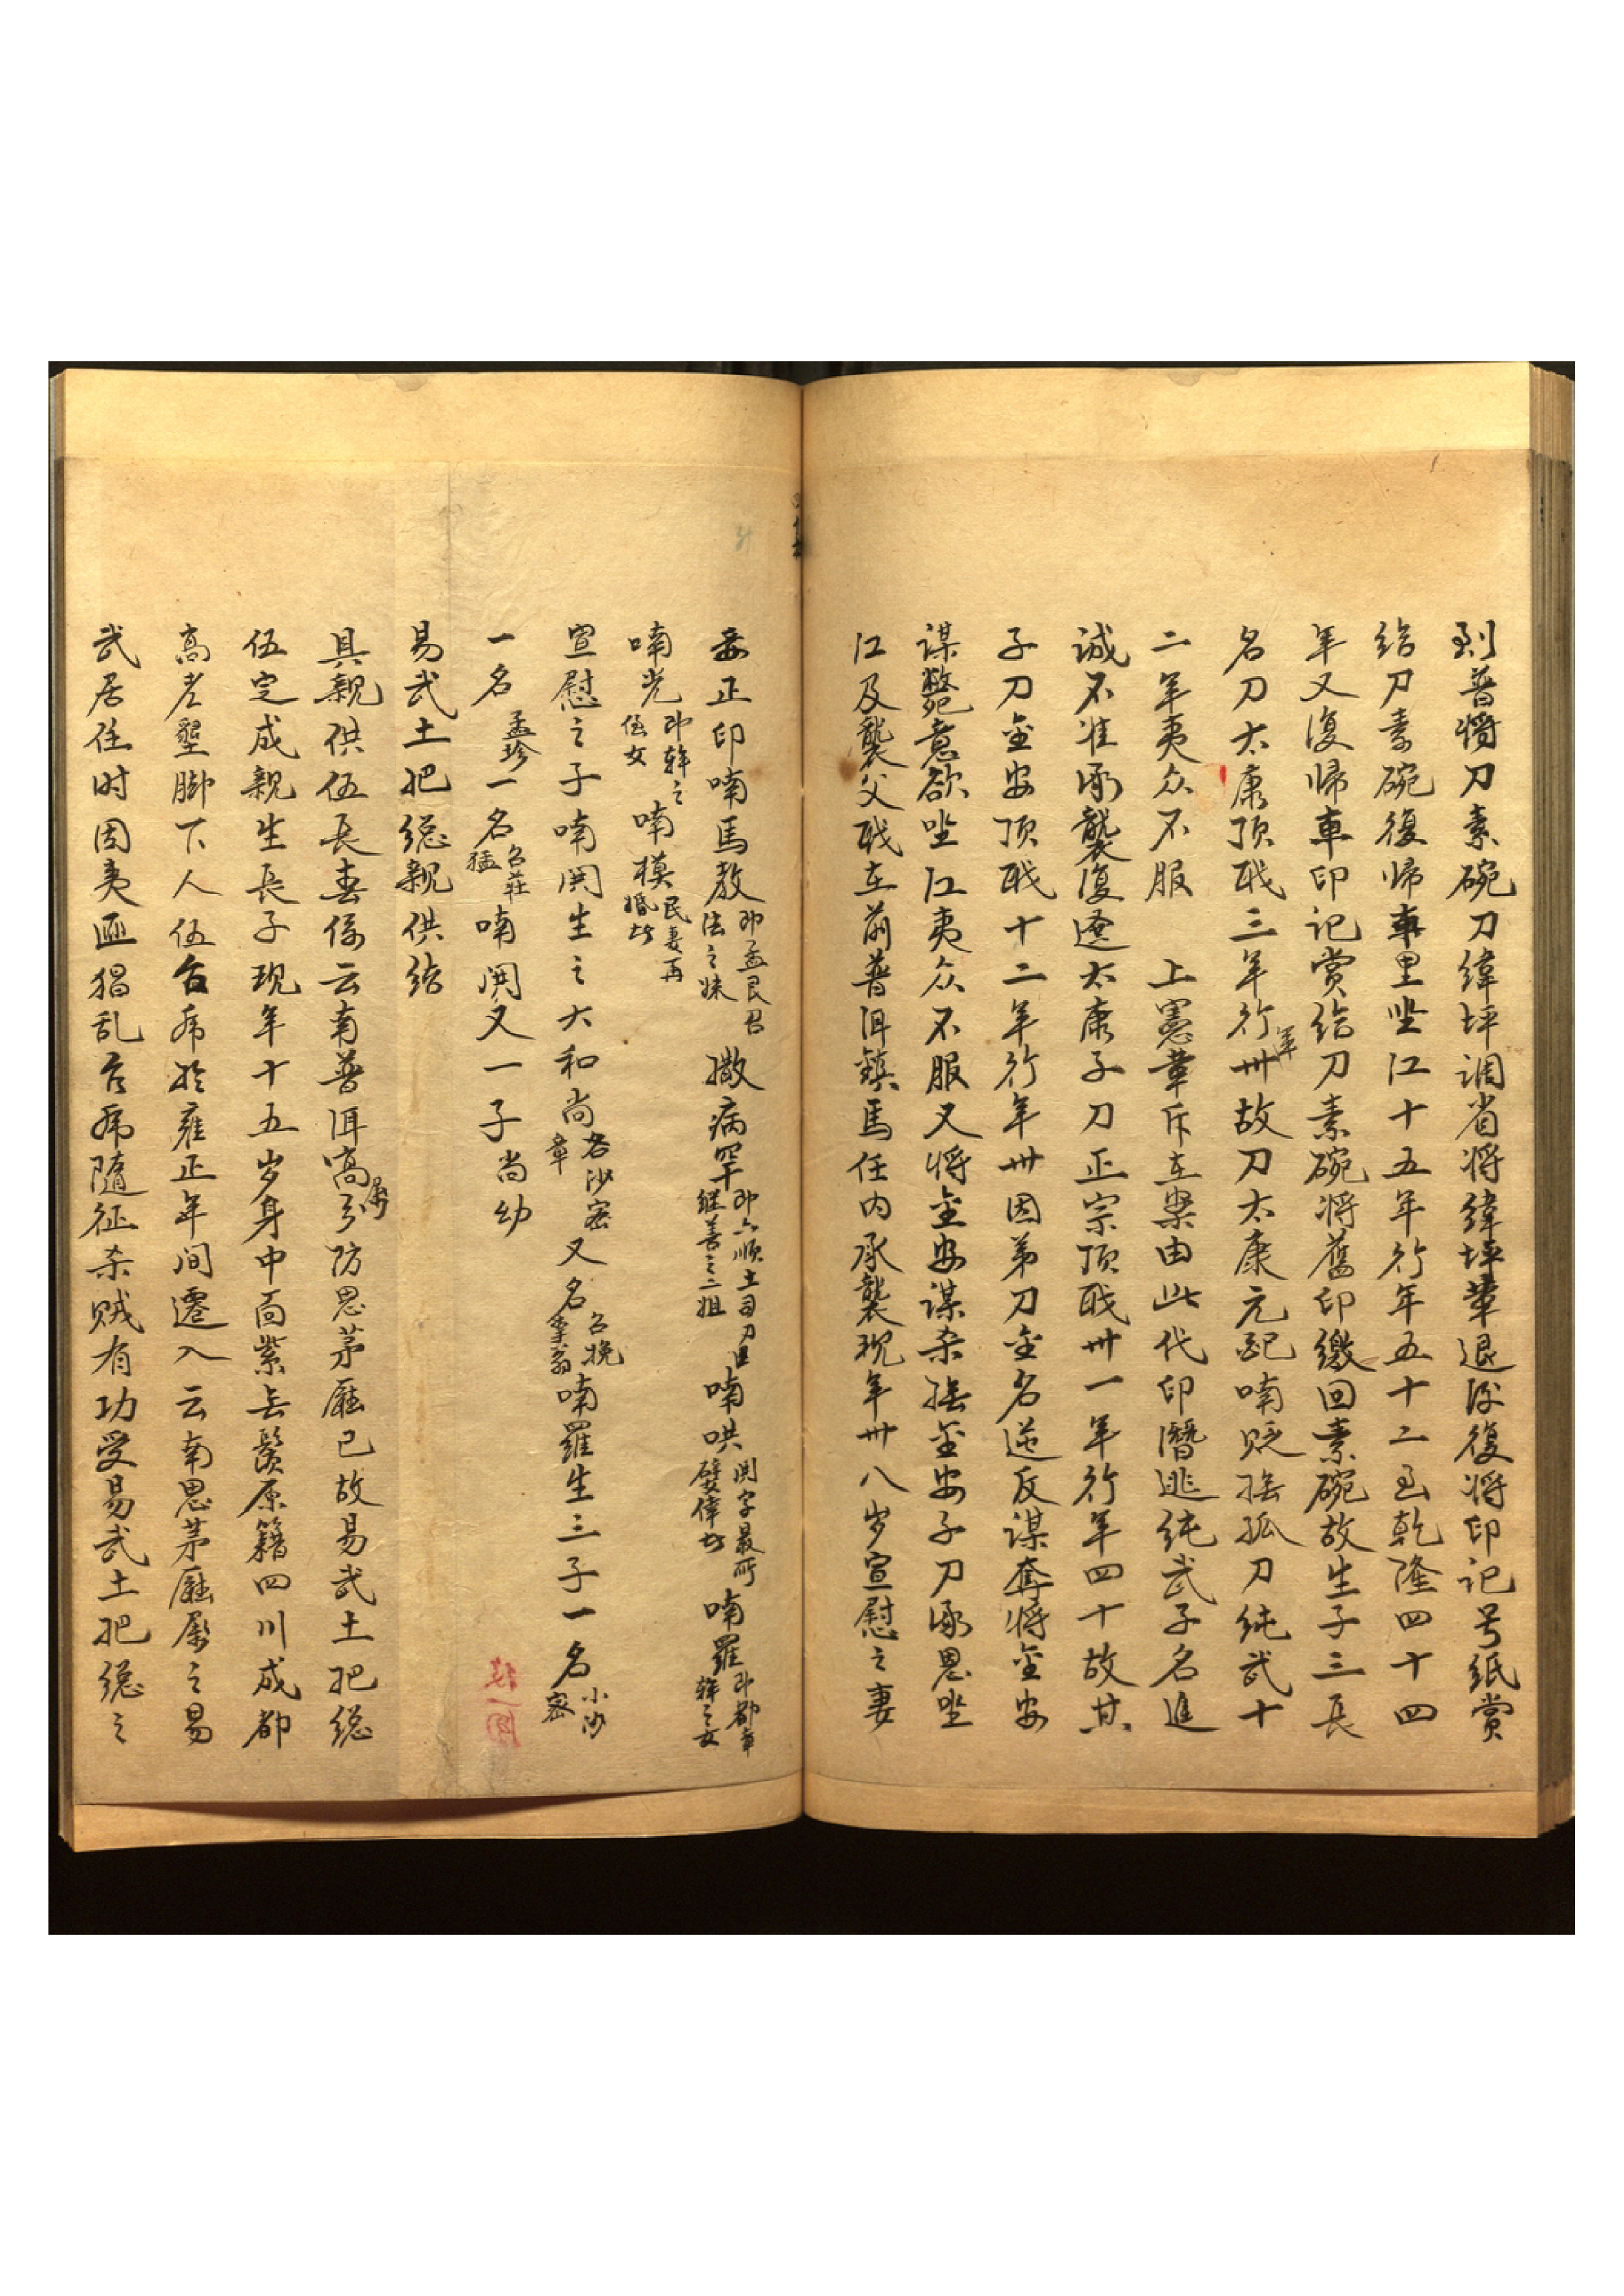 到普將刀素碗刀緯坪調省将緯坪革退後復将印记号纸赏
给刀素碗復帰車里坐江十五年行年五十二至乾隆四十四
年又復帰車印记赏给刀素碗将舊印繳回素碗故生子三長
名刀太康顶職三年行卅年故刀太康元配喃贬撫孤刀純武十
二年夷众不服 上憲革斥在案由此代印潛逃純武子名進
诚不准承襲復遷太康子刀正宗顶职卅一年行年四十故其
子刀金安顶职十二年行年卅因弟刀金名逆反谋奪将金安
谋斃意欲坐江夷众不服又将金安谋杀撫金安子刀承恩坐
江及襲父职在前普洱鎮馬任内承襲现年卅八岁宣慰之妻
妾正印喃馬教 即孟艮召法之妹 撒病罕 即六順土司刀继善之二姐 喃哄 喃羅
喃光 即幹之侄女 喃模 民妻再婚
宣慰之子喃関生之大和尚 又名 喃羅生三子一名 小沙密
一名孟珍一名召莊猛喃関又一子尚幼
易武土把總親供结
具親供伍長春係云南普洱属思茅廳已故易武土把総
伍定成親生長子现年十五岁身中面紫無鬚原籍四川成都
高老墾脚下人伍台於雍正年间遷入云南思茅廳属之易
武居住时因夷匪猖乱 隨征杀贼有功受易武土把總之